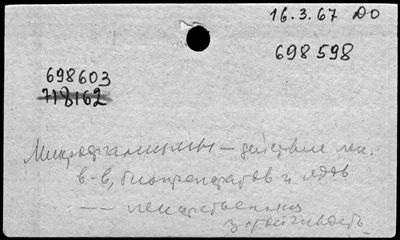 16.3.67 ДО
698598
698603
718162
Микроорганизмы — действие лек.
в-в, биопрепаратов и ядов
— лекарственная
устойчивость